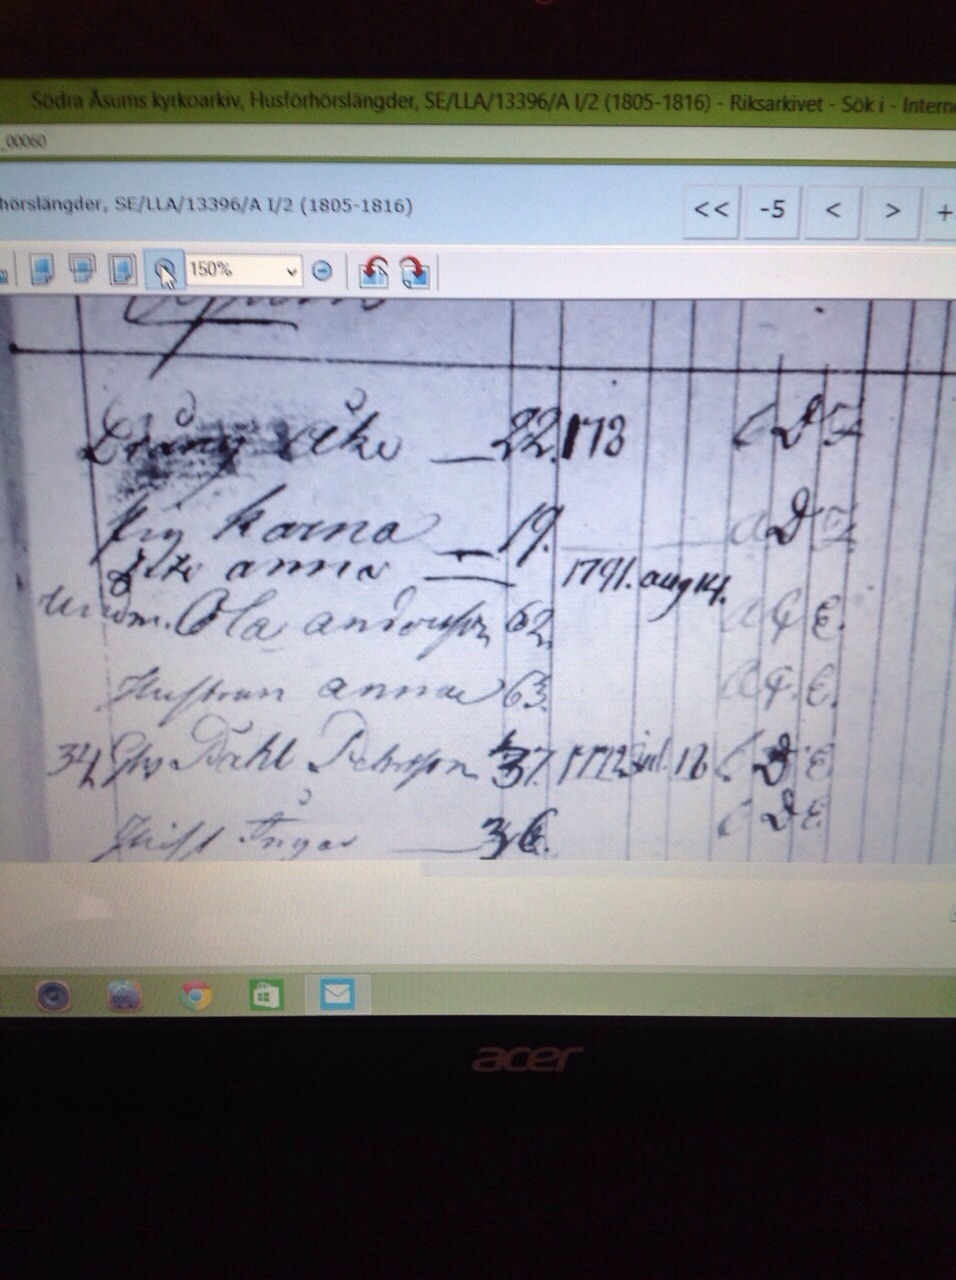 Södra Åsums kyrkoarkiv, Husförhörslängder, SE/LLA/13396/A I/2 (1805-1816) - Riksarkivet - Sök i - Intern
_00060
hörslängder, SE/LLA/13396/A I/2 (1805-1816)
<< -5 < > +
150%
Dräng Åke 22. 178 C D
Pig Karna 19. a D
anna 1791. aug 14.
Ola andersson 62. a E.
Hustrun anna 63. a E.
34 Påhl Pehrsson 37. 1772 Jul. 18 C D E
Hust Ingar 36. C D E
acer